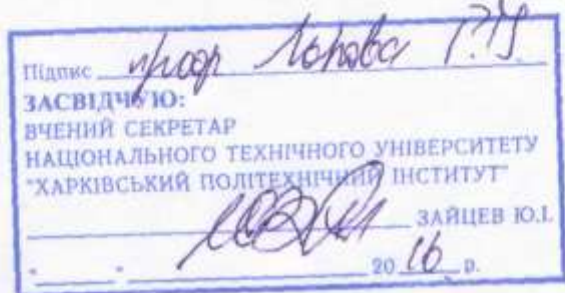 Підпис проф Львова Г.І.
ЗАСВІДЧУЮ:
ВЧЕНИЙ СЕКРЕТАР
НАЦІОНАЛЬНОГО ТЕХНІЧНОГО УНІВЕРСИТЕТУ
"ХАРКІВСЬКИЙ ПОЛІТЕХНІЧНИЙ ІНСТИТУТ"
ЗАЙЦЕВ Ю.І.
" " 20 16 р.